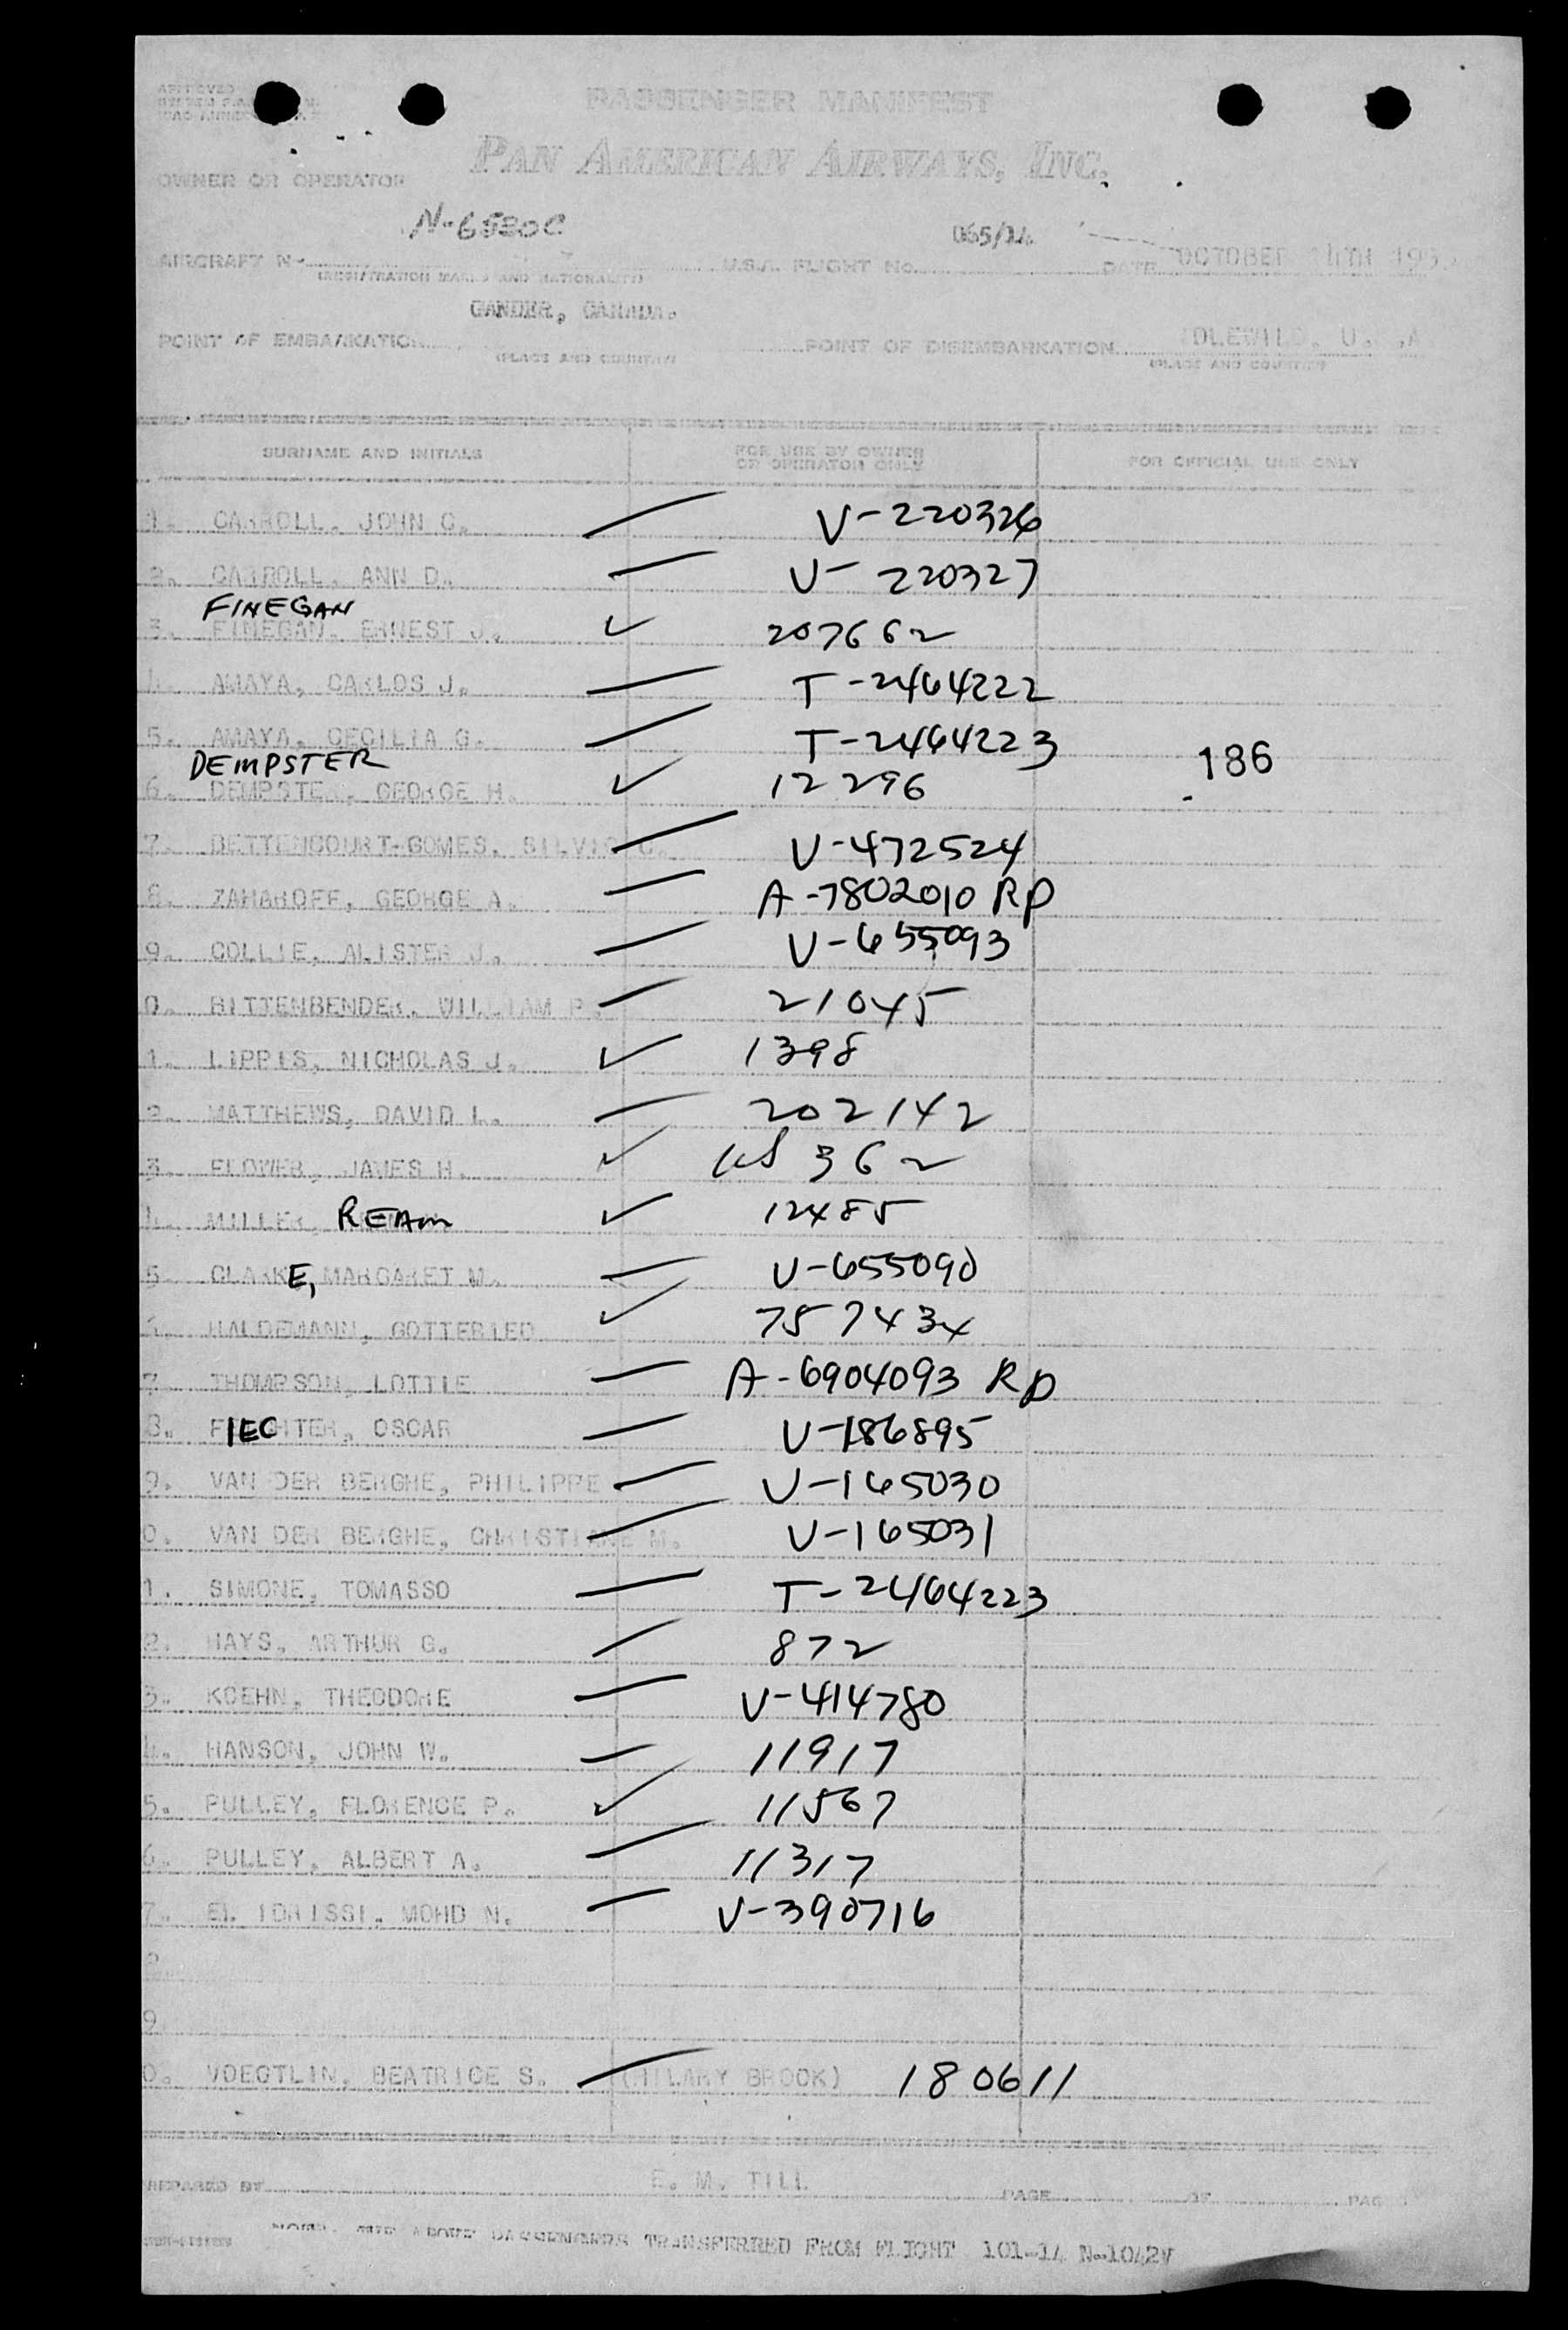 PASSENGER MANIFEST
PAN AMERICAN AIRWAYS, INC.
OWNER OR OPERATOR
N-6520C
065/14
AIRCRAFT N- U.S.A. FLIGHT No. DATE OCTOBER 14TH 195
(REGISTRATION MARKS AND NATIONALITY)
GANDER, CANADA.
POINT OF EMBARKATION POINT OF DISEMBARKATION IDLEWILD, U. ,A
(PLACE AND COUNTRY) (PLACE AND COUNTRY)
SURNAME AND INITIALS FOR USE BY OWNER OR OPERATOR ONLY FOR OFFICIAL USE ONLY
1. CARROLL, JOHN C. — V-220326
2. CARROLL, ANN D. — V-220327
FINEGAN
3. FINEGAN, ERNEST J. ✓ 207662
4. AMAYA, CARLOS J. — T-2464222
5. AMAYA, CECILIA G. — T-2464223
DEMPSTER 186
6. DEMPSTER, GEORGE H. ✓ 12296
7. BETTENCOURT-GOMES, SILVIO C. — V-472524
8. ZAHAROFF, GEORGE A. — A-7802010 RP
9. COLLIE, ALISTER J. — V-655093
0. BITTENBENDER, WILLIAM P. — 21045
1. LIPPIS, NICHOLAS J. ✓ 1398
2. MATTHEWS, DAVID L. — 202142
3. FLOWER, JAMES H. ✓ 362
4. MILLER, REAM ✓ 12485
5. CLARKE, MARGARET M. — V-655090
6. HALDEMANN, GOTTFRIED ✓ 757434
7. THOMPSON, LOTTIE — A-6904093 RP
8. FIECHTER, OSCAR — V-186895
9. VAN DER BERGHE, PHILIPPE — V-165030
0. VAN DER BERGHE, CHRISTIANE M. — V-165031
1. SIMONE, TOMASSO — T-2464223
2. HAYS, ARTHUR G. — 872
3. KOEHN, THEODORE — V-414780
4. HANSON, JOHN W. — 11917
5. PULLEY, FLORENCE P. ✓ 11567
6. PULLEY, ALBERT A. — 11317
7. EL IDRISSI, MOHD N. — V-390716
9
0. VOEGTLIN, BEATRICE S. — (HILARY BROOK) 180611
PREPARED BY E. M. TILL PAGE OF PAGES
NOTE. THE ABOVE PASSENGERS TRANSFERRED FROM FLIGHT 101-14 N-1042V